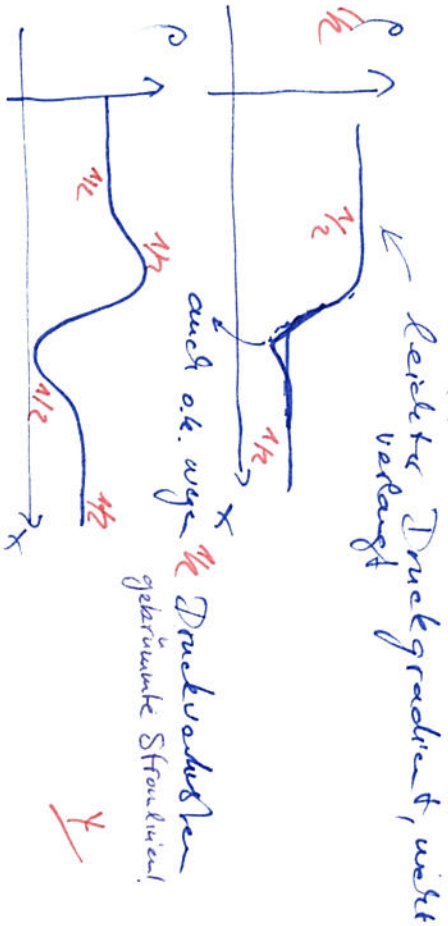 leichter Druckgradient, nicht
verlangt
p
1/2
1/2
1/2
x
auch o.k. wegen 1/2 Druckverlusten
gekrümmte Stromlinien!
p
1/2
1/2
1/2
1/2
x